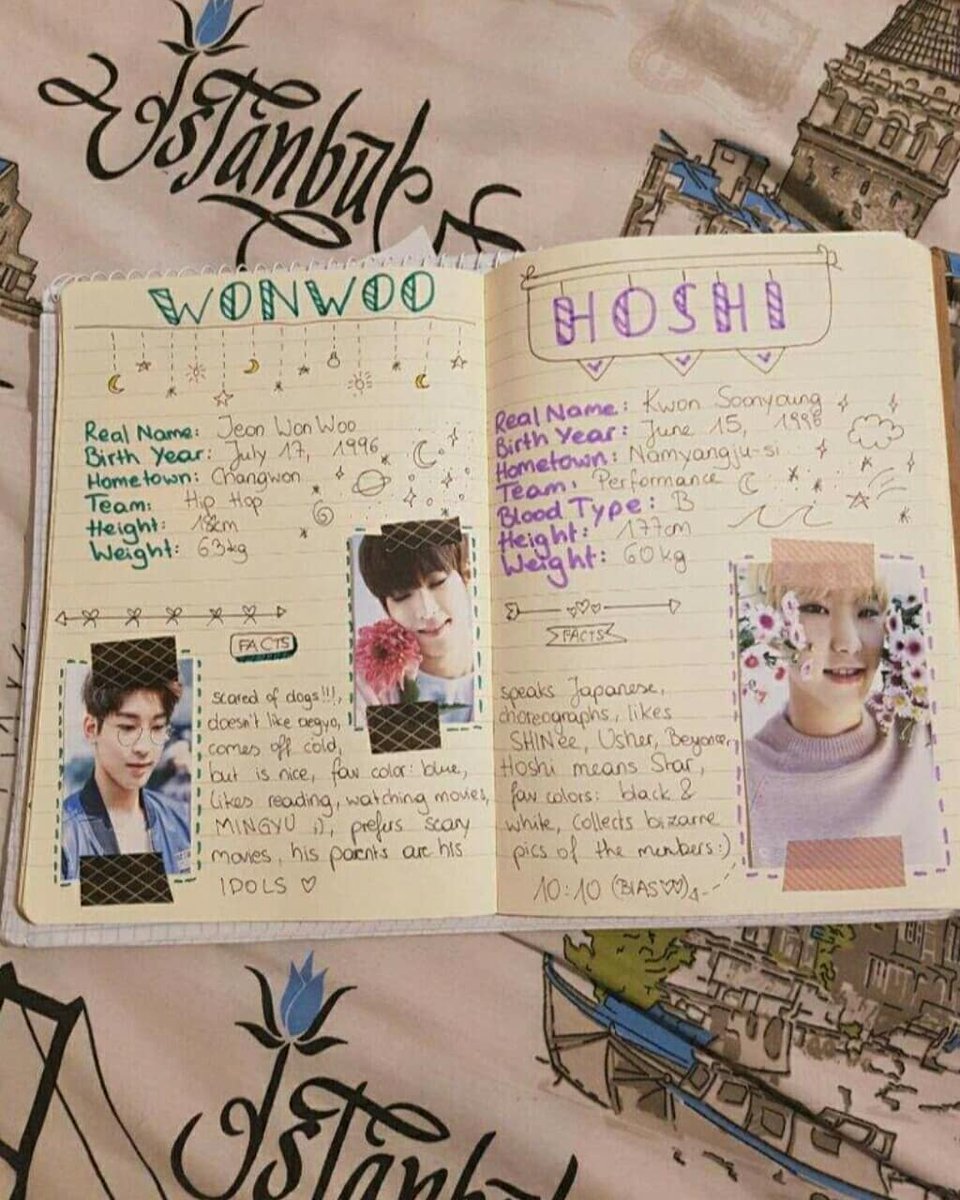 İstanbul
WONWOO
Real Name: Jeon WonWoo
Birth Year: July 17, 1996
Hometown: Changwon
Team: Hip Hop
Height:
Weight: 63kg
FACTS
scared of dogs!!!,
doesn't like aegyo,
comes off cold,
but is nice, fav color: blue,
likes reading, watching movies,
MINGYU ;), prefers scary
movies, his parents are his
IDOLS ♡
HOSHI
Real Name: Kwon Soonyoung
Birth Year: June 15, 1996
Hometown: Namyangju-si
Team: Performance
Blood Type: B
Height: 177cm
Weight: 60kg
FACTS
speaks Japanese,
choreographs, likes
SHINee, Usher, Beyonce,
Hoshi means Star,
fav colors: black &
white, collects bizarre
pics of the members:)
10:10 (BIAS♡♡)
İstanbul